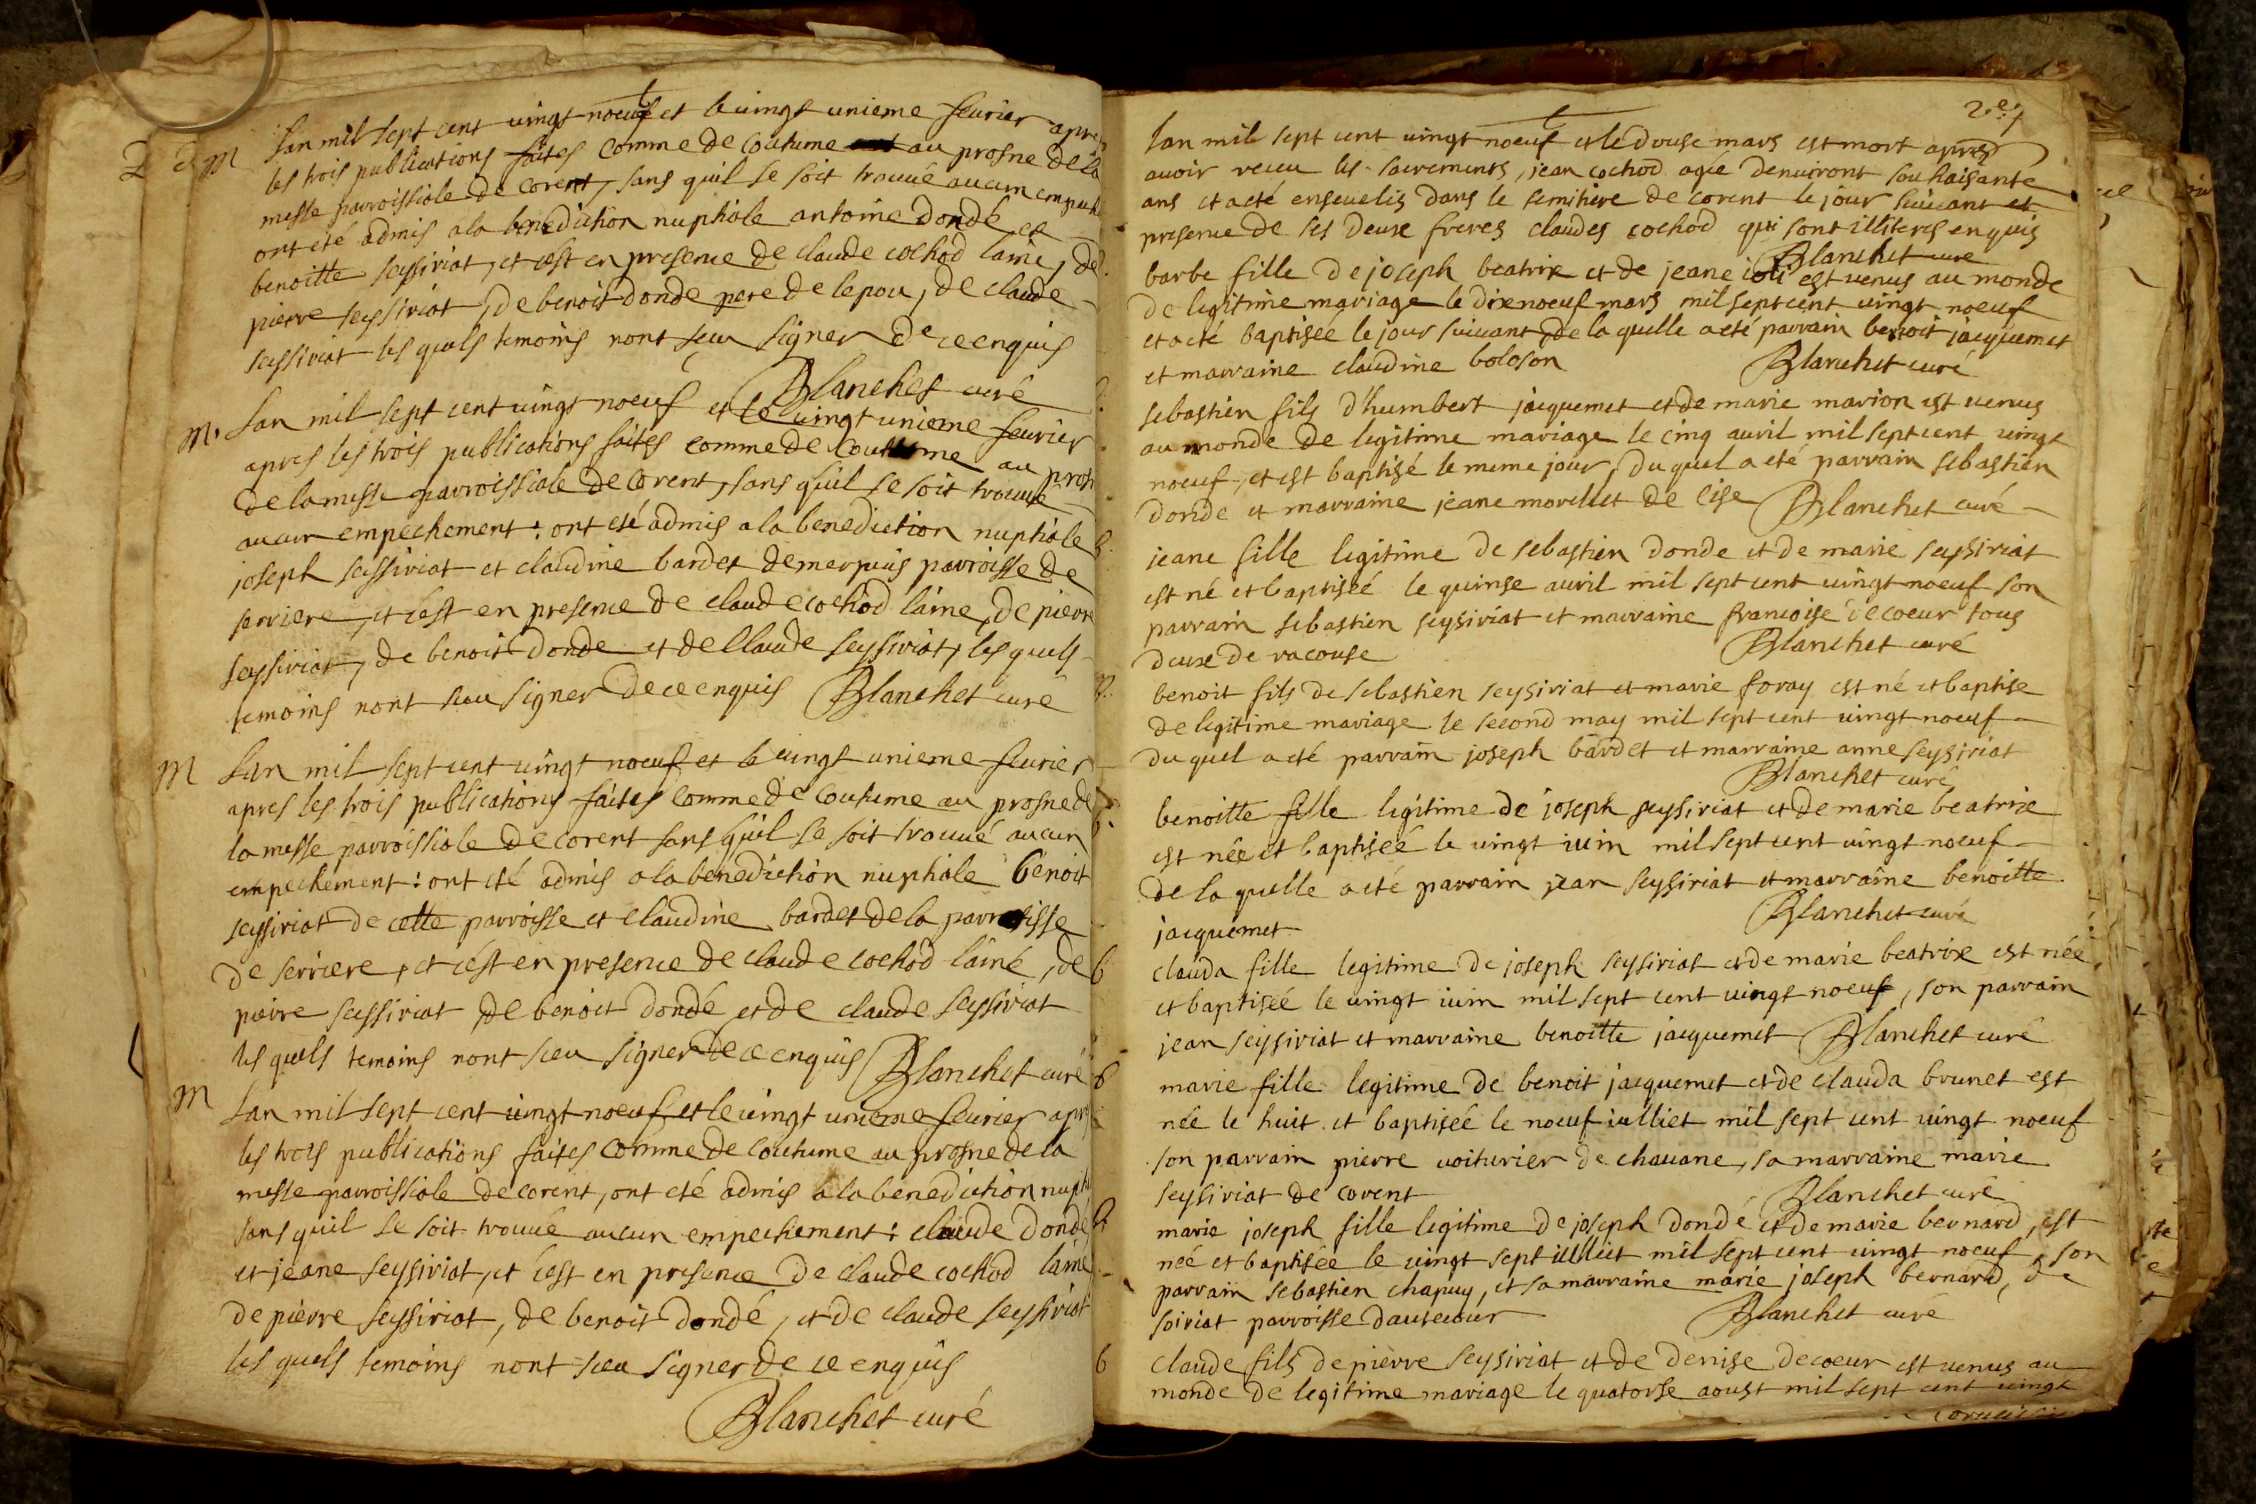 M Lan mil sept cent vingt noeuf et le vingt unieme feurier apres
les trois publications faites comme de coutume au prosne de la
messe parroissiale de corent, sans quil se soit trouué aucun empech
ont été admis a la benediction nuptiale antoine donde et
benoitte seyssiriat, et cest en presence de claude cochod lainé, de
pierre seyssiriat, de benoit donde pere de lepou, de claude
seyssiriat les quels temoins nont sceu signer de ce enquis
Blanchet curé
M. Lan mil sept cent vingt noeuf et le vingt unieme feurier
apres les trois publications faites comme de coutume au prosn
de la messe parroissiale de corent, sans quil se soit trouué
aucun empechement : ont eté admis a la benediction nuptiale
joseph seissiriat et claudine bardet demerpuis parroisse de
serriere, et cest en presence de claude cochod laine, de pierre
seyssiriat, de benoit donde et de Claude seyssiriat, les quels
temoins nont sceu signer de ce enquis Blanchet curé
M Lan mil sept cent vingt noeuf et le vingt unieme feurier
apres les trois publications faites comme de coutume au prosne de
la messe parroissiale de corent sans quil se soit trouué aucun
empechement : ont eté admis a la benediction nuptiale benoit
seyssiriat de cette parroisse et claudine bardet de la parroisse
de serriere, et cest en presence de claude cochod lainé, de
pierre seyssiriat de benoit dondé et de claude seyssiriat
les quels temoins nont sceu signer de ce enquis Blanchet curé
M Lan mil sept cent vingt noeuf et le vingt unieme feurier apr
les trois publications faites comme de coutume au prosne de la
messe parroissiale de corent, ont eté admis a la benediction nupti
sans quil se soit trouué aucun empechement : claude donde
et jeane seysiriat, et cest en presence de claude cochod lainé
de pierre seyssiriat, de benoit dondé, et de claude seyssiriat
les quels temoins nont sceu signer de ce enquis
Blanchet curé
Lan mil sept cent vingt noeuf et le douse mars est mort apres
auoir receu les sacrements, jean cochod agée denuiront soithaisante
ans et a eté enseuelis dans le semitiere de corent le jour suiuant et
presence de ses deux freres claudes cochod qui sont illiteres enquis
Blanchet curé
barbe fille de joseph beatrix et de jeane ioli est venus au monde
de legitime mariage le dixnoeuf mars mil sept cent vingt noeuf
et a eté baptisée le jour suiuant, de la quelle a eté parrain benoit jacquemet
et marraine claudine boloson Blanchet curé
sebastien fils d'humbert jacquemet et de marie marion est venus
au monde de legitime mariage le cinq auril mil sept cent vingt
noeuf, et est baptisé le meme jour, du quel a eté parrain sebastien
donde et marraine jeane morellet de cise Blanchet curé
jeane fille legitime de sebastien donde et de marie seysiriat
est né et baptisée le quinse auril mil sept cent vingt noeuf son
parrain sebastien seysiriat et marraine francoise decoeur tous
deux de racouse Blanchet curé
benoit fils de sebastien seysiriat et marie foray est né et baptise
de legitime mariage le second may mil sept cent vingt noeuf
du quel a eté parrain joseph bardet et marraine anne seysiriat
Blanchet curé
benoitte fille legitime de joseph seysiriat et de marie beatrix
est née et baptiseé le vingt iuin mil sept cent vingt noeuf
de la quelle a eté parrain jean seysiriat et marraine benoitte
jacquemet Blanchet curé
clauda fille legitime de joseph seysiriat et de marie beatrix est née
et baptiseé le vingt iuin mil sept cent vingt noeuf, son parrain
jean seysiriat et marraine benoitte jacquemet Blanchet curé
marie fille legitime de benoit jacquemet et de clauda brunet est
née le huit et baptiseé le noeuf iulliet mil sept cent vingt noeuf
son parrain pierre voiturier de chauane, sa marraine marie
seysiriat de corent Blanchet curé
marie joseph fille legitime de joseph dondé et de marie bernard, est
neé et baptisée le vingt sept iulliet mil sept cent vingt noeuf, son
parrain sebastien chapuy, et sa marraine marie joseph bernard, de
soiriat parroisse dautecour Blanchet curé
claude fils de pierre seysiriat et de denise decoeur est venus au
monde de legitime mariage le quatorse aoust mil sept cent vingt